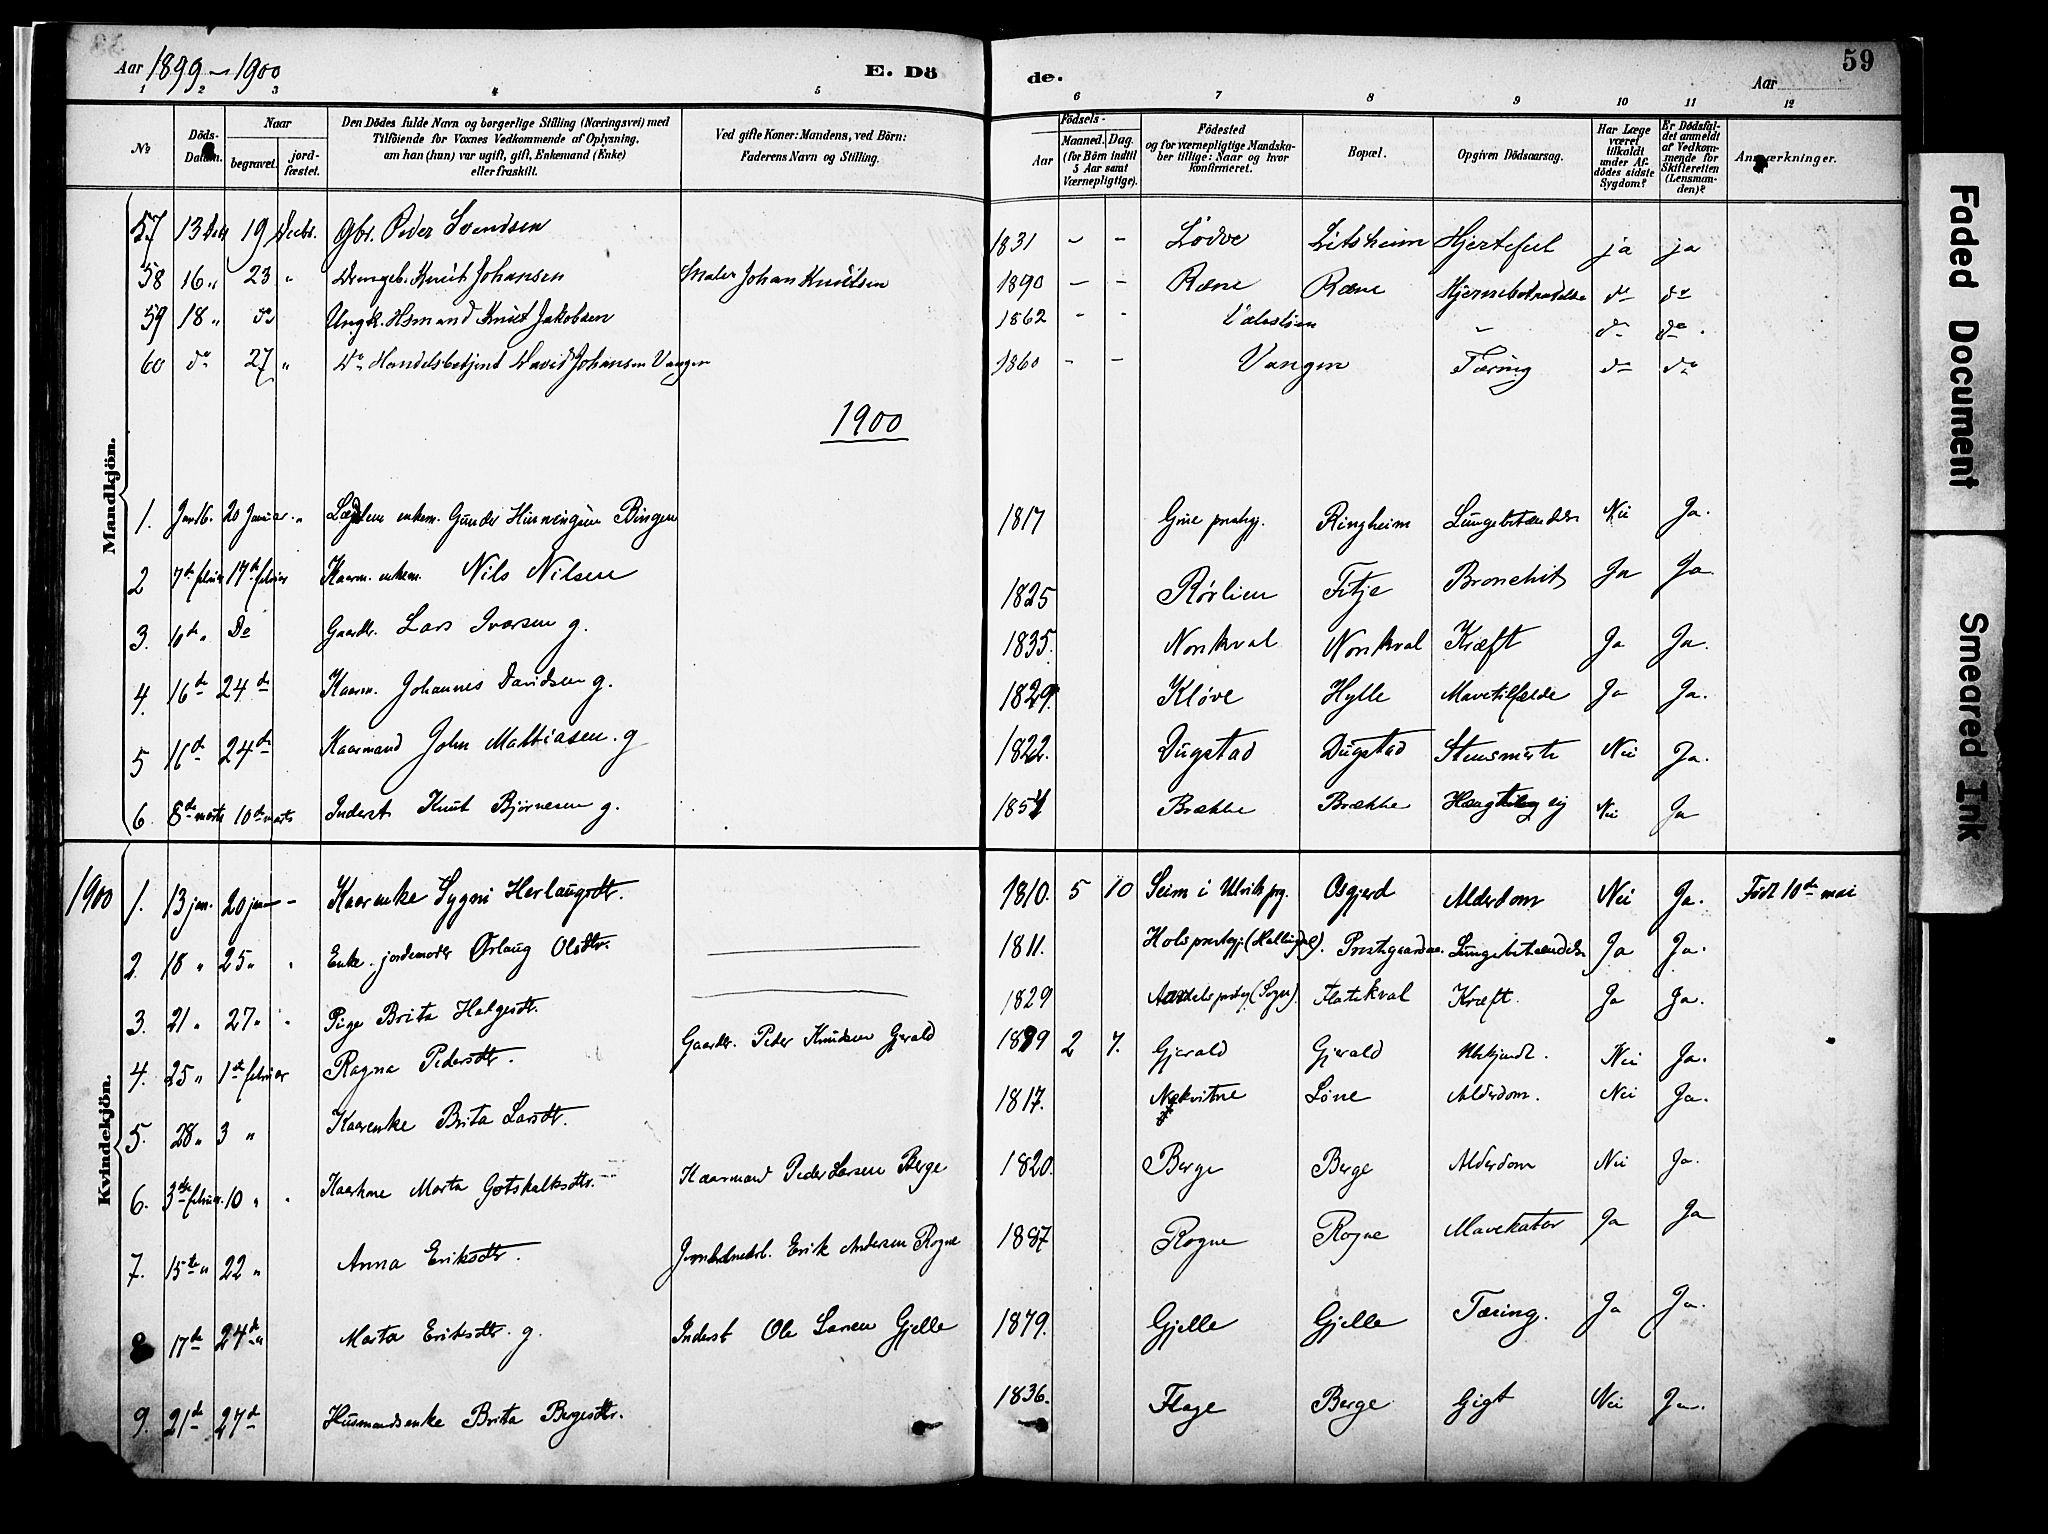 Aar 1899-1900 E. Dö de. Aar 59
1 2 3 4 5 6 7 8 9 10 11 12
No Döds-Datum. Naar begravet. jordfæstet. Den Dödes fulde Navn og borgerlige Stilling (Næringsvei) med Tilföiende for Voxnes Vedkommende af Oplysning, om han (hun) var ugift, gift, Enkemand (Enke) eller fraskilt. Ved gifte Koner: Mandens, ved Börn: Faderens Navn og Stilling. Födsels- Aar Maaned. Dag. (for Börn indtil 5 Aar samt Værnepligtige). Födested og for værnepligtige Mandskaber tillige: Naar og hvor konfirmeret. Bopæl. Opgiven Dödsaarsag. Har Læge været tilkaldt under Afdödes sidste Sygdom? Er Dödsfaldet anmeldt af Vedkommende for Skifteretten (Lensmanden)? Anmærkninger.
Mandkjön.
57 13 Decbr 19 Decbr. Gbr. Peder Svendsen 1831 - - Lödve Litsheim Hjertefeil ja ja
58 16 " 23 " Drengeb. Knut Johansen Maler Johan Knutsen 1890 - - Rene Rene Hjernebetændelse do do
59 18 " do Ungk. Hsmand Knut Jakobsen 1862 - - - do do.
60 do 27 " Do Handelsbetjent David Johansen Vangen 1860 - - Vangen Tæring do do
1900
1. Jan 16. 20 Januar. " enkem. Gunder Bingen 1817 Ringheim Lungebetændelse Nei Ja.
2 7de februar 17de februar Kaarm. enkem. Nils Nilsen 1825 Rørlien Fitje Bronchit Ja Ja.
3. 10de " Do Gaardbr. Lars Ivarsen g. 1835. Norkval Norkval Kræft Ja Ja.
4. 16de 24de Kaarm. Johannes Davidsen g. 1829. Kløve Hylle Mavetilfælde Ja Ja.
5 16de 24de Kaarmand John Mathiasen. g 1822. Dugstad Dugstad Stensmerte Nei Ja.
6. 8de marts 10de marts Inderst Knut Bjørnesen g. Brække Brække Hængte sig Nei Ja
1900
Kvindekjön.
1. 13 jan. 20 januar - Kaarenke Sygni Herlaugsdtr. 1810. 5 10 Seim i Ulvik prg. Osgjerd Alderdom Nei Ja. Født 10de mai
2. 18 " 25 " " Enke. jordemoder Ørlaug Olsdtr. 1811. Hols prestegj. (Hallingdal). Prestgaarden. Lungebetændelse Ja Ja.
3. 21 " 27 " " Pige Brita Helgesdtr. 1829 Aardals prstgj (Sogn). Flatekval Kræft. Ja Ja.
4. 25 " 1ste februar Ragna Pedersdtr. Gaardbr. Peder Knudsen Gjerald 1899 2 7. Gjerald Gjerald Ubekjendt. Nei Ja.
5. 28 " 3 " Kaarenke Brita Larsdtr. 1817. Nøkvitne Lone Alderdom. Nei Ja.
6. 3die februar. 10 " " Kaarkone Marta Gotskalksdtr. Kaarmand Peder Larsen Berge 1820. Berge Berge Alderdom Nei Ja.
7. 15de " 22 " Anna Eriksdtr. Erik Andersen Rogne 1887 Rogne Rogne Mavekatar Ja Ja
8 17de 24de " Marta Eriksdtr. g. Inderst Ole Larsen Gjelle 1879. Gjelle Gjelle Tæring. Ja Ja.
9. 21de 27de Husmandsenke Brita Bergesdtr. 1836. Flage Berge Gigt Nei Ja.
Faded Document
Smeared Ink